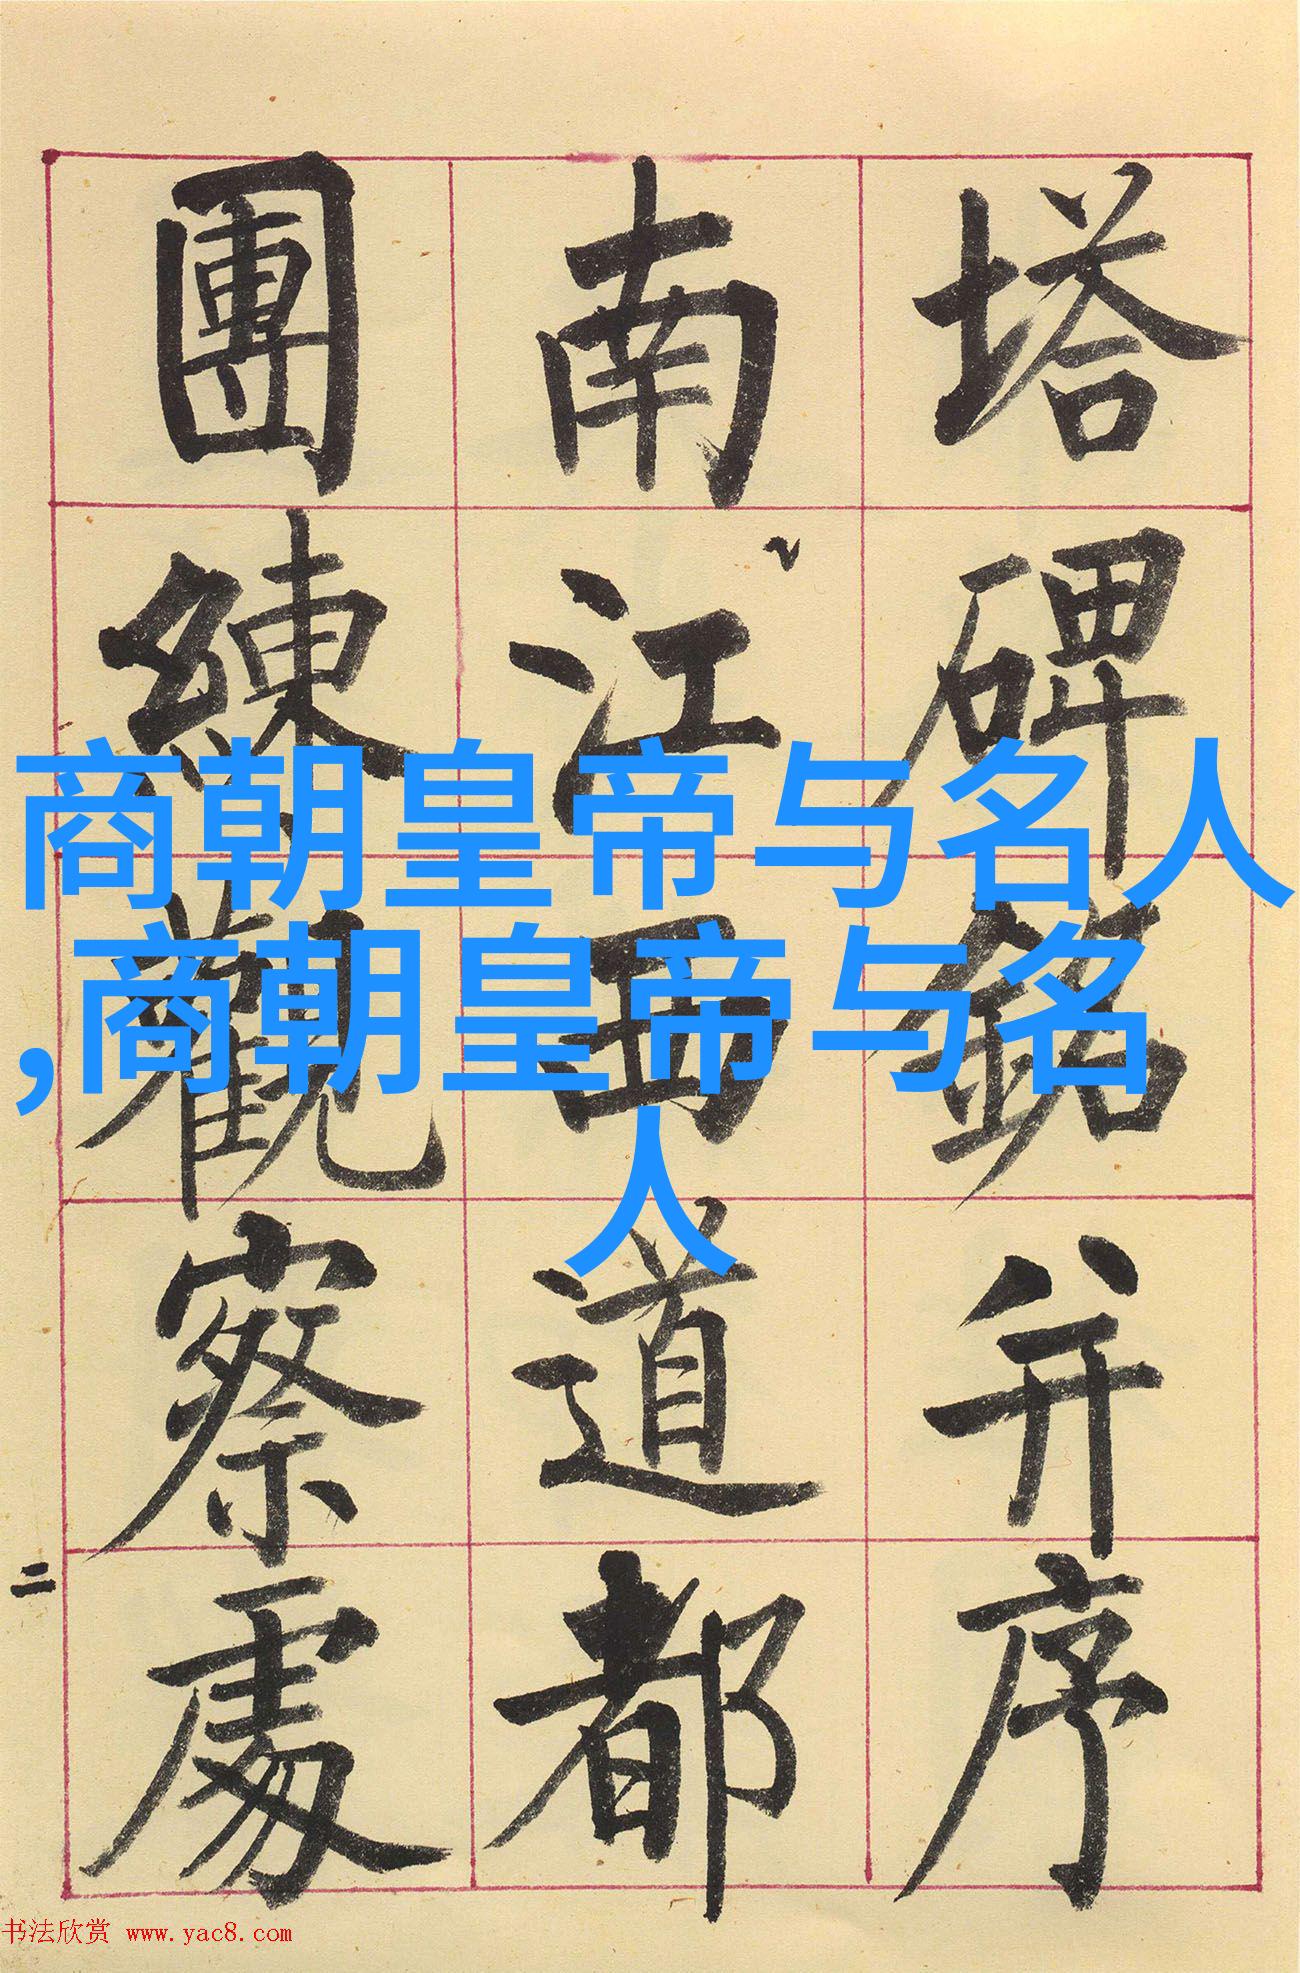 塔碑銘并序
南江西道都
團練觀察處
二
商朝皇帝与名人
,商朝皇帝与名
人
书法欣赏 www.yac8.com